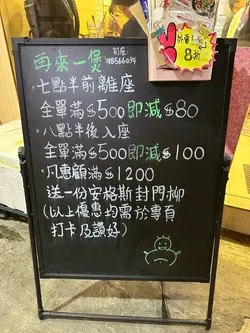 再來一煲
訂座:
95566034
•七點半前離座
全單滿$500即減$80
•八點半後入座
全單滿$500即減$100
•凡惠顧滿$1200
送一份安格斯封門柳
(以上優惠均需於專頁
打卡及讚好)
8折